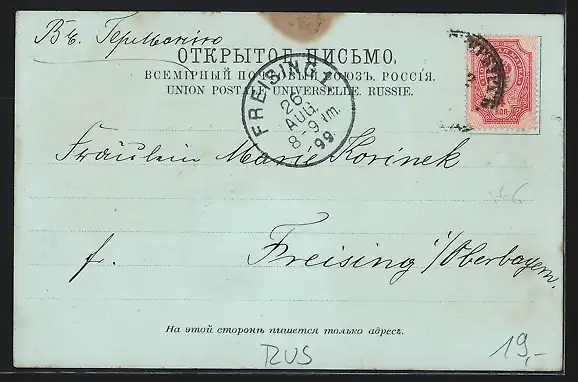 Въ Германію
ОТКРЫТОЕ ПИСЬМО.
ВСЕМІРНЫЙ ПОЧТОВЫЙ СОЮЗЪ. РОССІЯ.
UNION POSTALE UNIVERSELLE. RUSSIE.
FREISING 1
26
AUG.
8-9 Vm.
99.
КОП.
Fräulein Marie Korinek
f. Freising i/Oberbayern.
На этой сторонѣ пишется только адресъ.
RUS
19,-